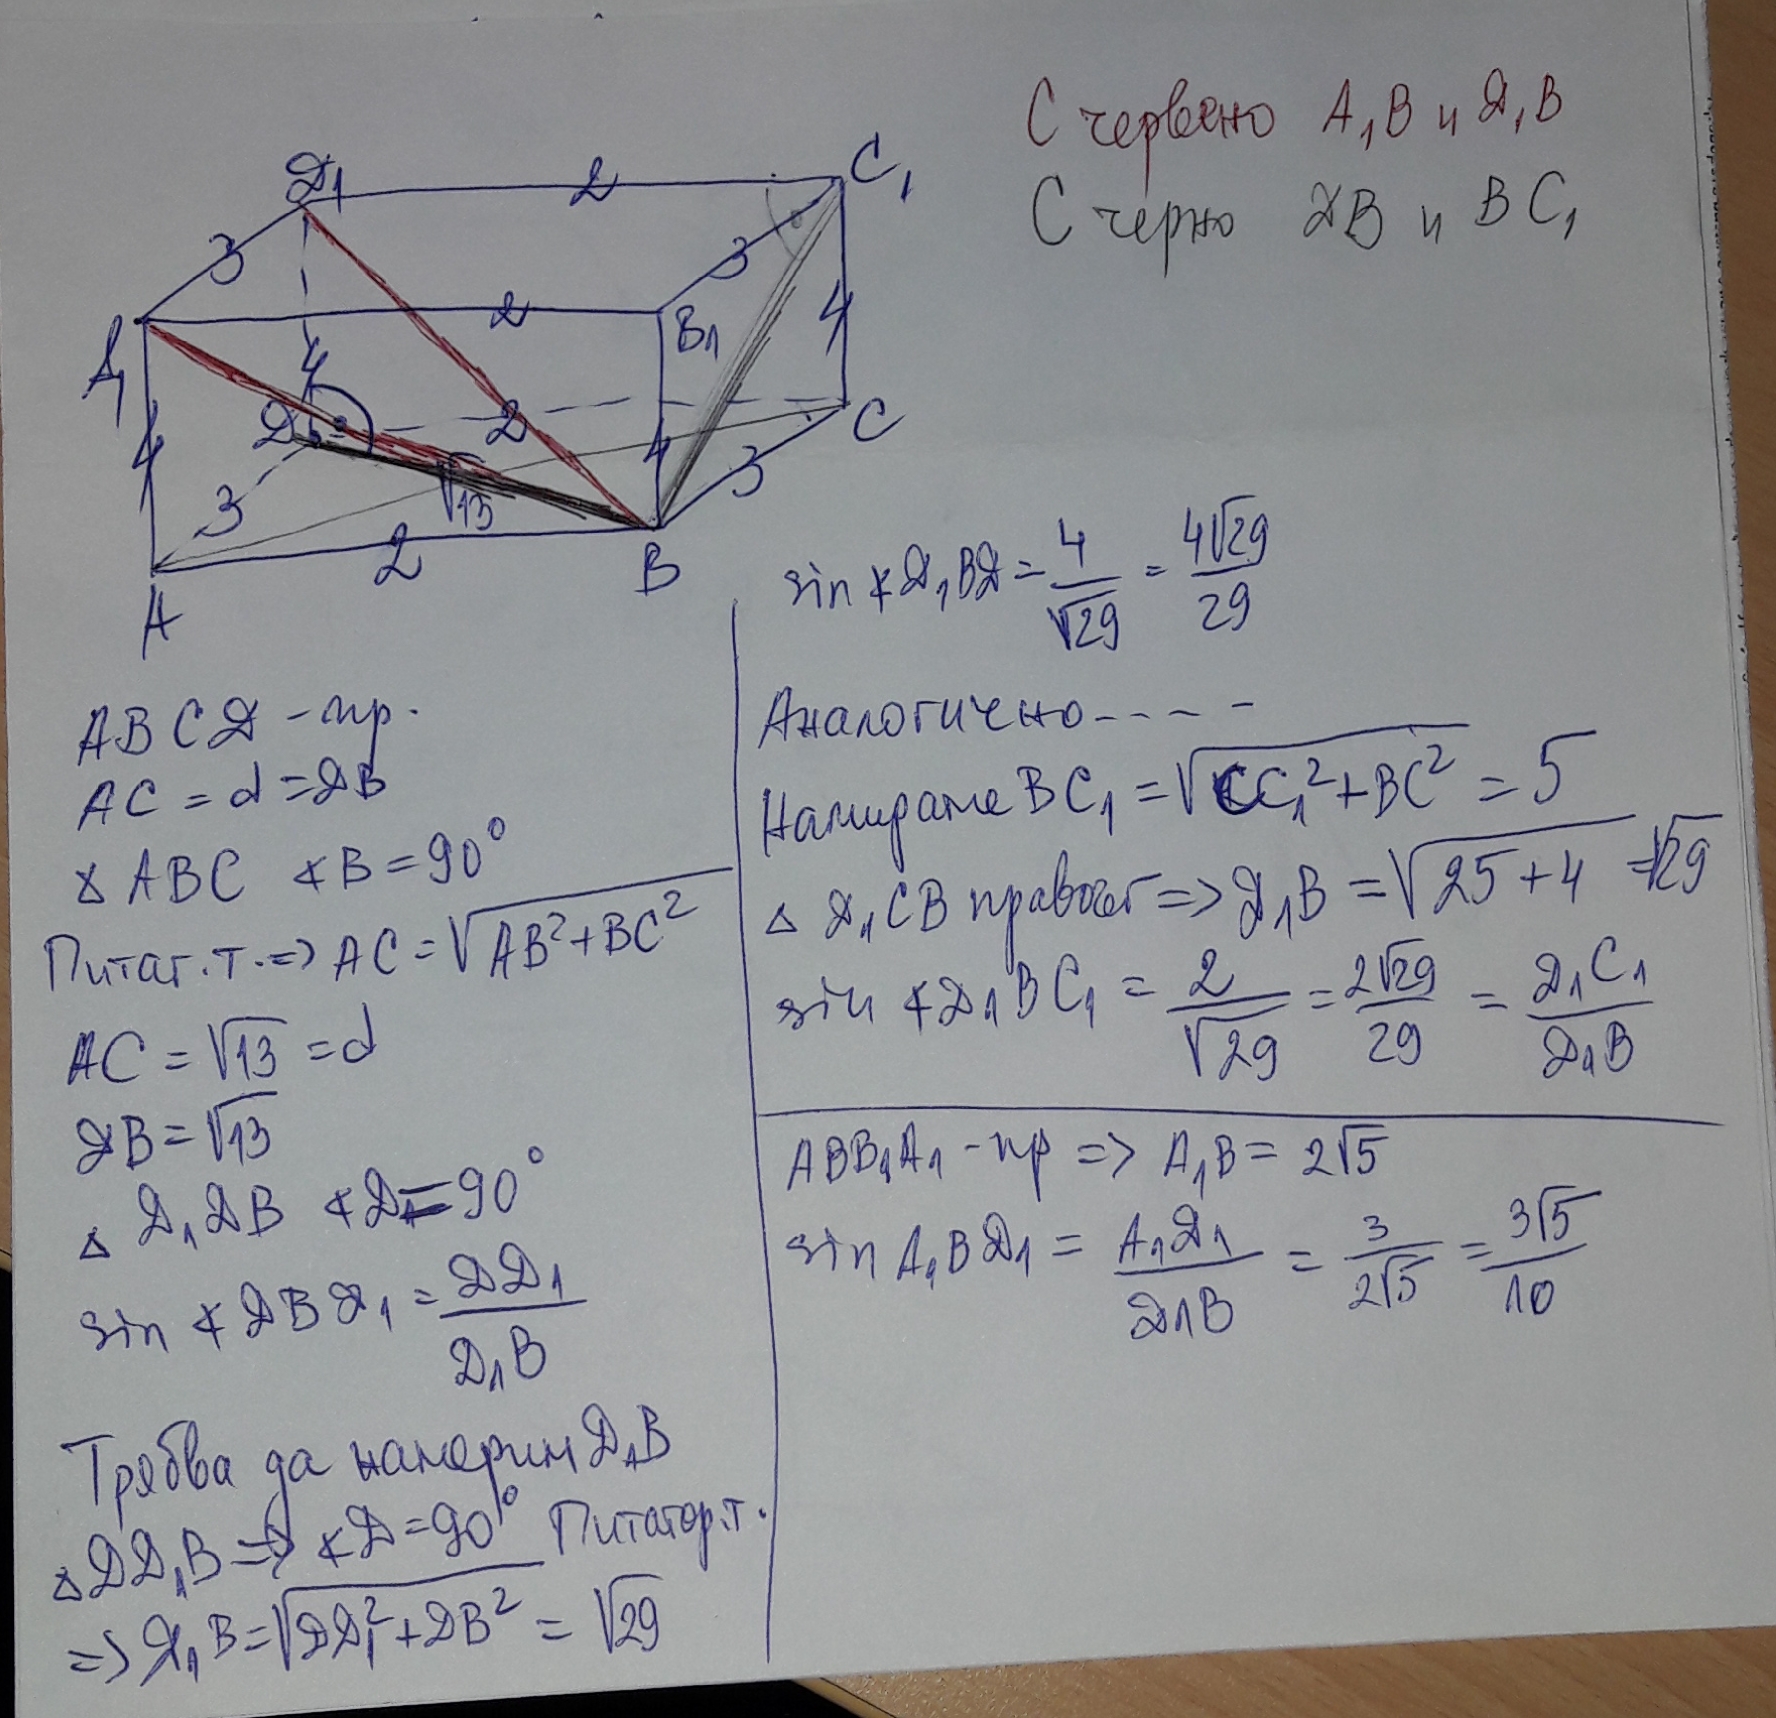 С червено A₁B и D₁B
С черно DB и BC₁
D₁
2
C₁
3
3
2
A₁
B₁
4
4
D
2
C
4
4
3
3
√13
2
B
A
ABCD - пр.
AC = d = DB
△ ABC ∢B = 90°
Питаг. т. => AC = √(AB² + BC²)
AC = √13 = d
DB = √13
△ D₁DB ∢D = 90°
sin ∢DBD₁ = DD₁/D₁B
Трябва да намерим D₁B
△DD₁B => ∢D = 90° Питагор. т.
=> D₁B = √(DD₁² + DB²) = √29
sin ∢D₁BD = 4/√29 = 4√29/29
Аналогично - - - -
Намираме BC₁ = √(CC₁² + BC²) = 5
△ D₁CB правоъг => D₁B = √(25 + 4) = √29
sin ∢D₁BC₁ = 2/√29 = 2√29/29 = D₁C₁/D₁B
ABB₁A₁ - пр => A₁B = 2√5
sin A₁BD₁ = A₁D₁/D₁B = 3/2√5 = 3√5/10